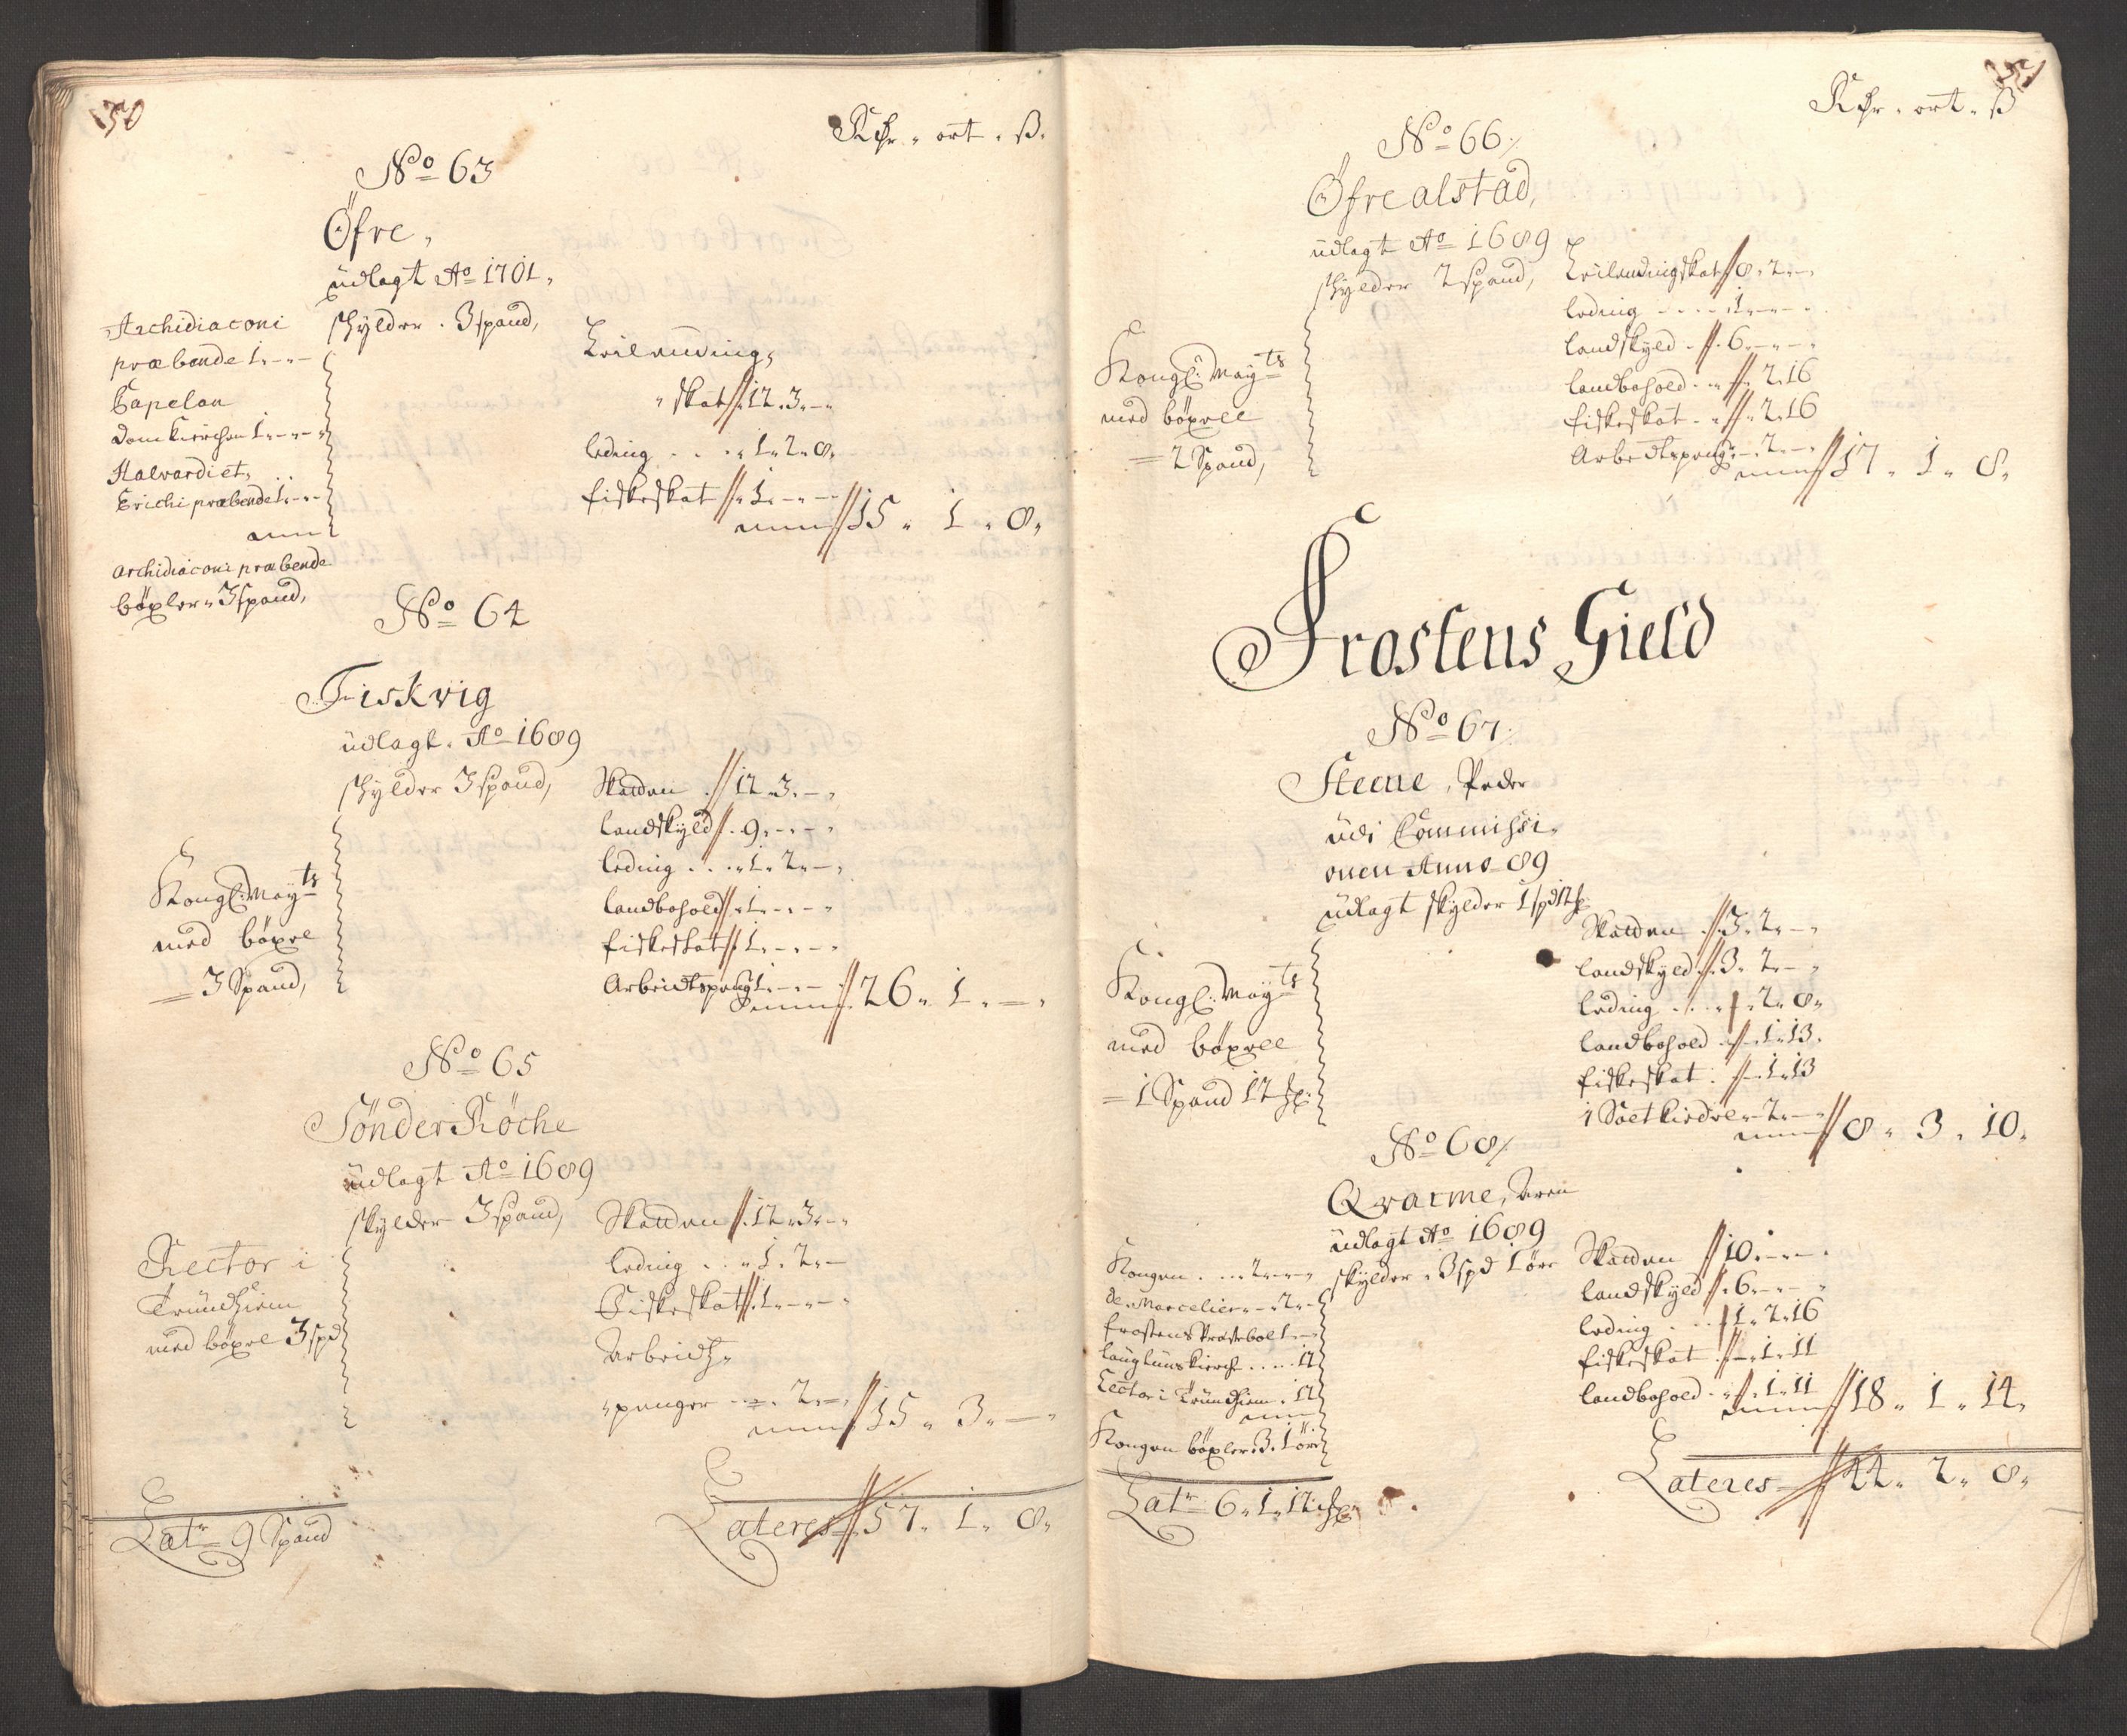 50
Rdr. ort. ß.
No 63
Öfre,
üdlagt Ao 1701,
skylder. 3 spand,
Archidiaconi
præbende 1.-.-
Capelan
Domkirchen 1.-.-
Halvardi et,
Erichi præbende 1.-.-
Archidiaconi præbende
böxler 3 spand,
Leilændings
skat 12.3.-
leding . . . 1.2.8.
fiskeskat 1.-.-
15. 1. 8.
No 64
Fiskvig
üdlagt. Ao 1689
skylder 3 spand,
Kongl: Mayts
med böxel
3 Spand,
Skatten 12.3.-
landskyld 9.-.-
leding . . . 1.2.-
landbohold 1.-.-
fiskeskat 1.-.-
Arbeidtspeng 1.-.-
26. 1. -.
No 65
Sönder Röche
üdlagt Ao 1689
skylder 3 spand,
Rector i
Trundhiem
med böxel 3 spd
Skatten 12.3.-
leding . . 1.2.-
Fiskeskat 1.-.-
Arbeidtz
penger -. 2.-
15. 3. -
Latr 9 Spand
Lateres 57. 1. 8.
51
Rdr. ort. ß
No 66
Öfre alstad,
üdlagt Ao 1689
skylder 2 spand,
Kongl: Mayts
med böxell
2 Spand,
Leilendingskat 8.2.-
leding . . . 1.-.-
landskyld 6.-.-
landbohold - 2.16
fiskeskat - 2.16
Arbeidtspeng -.2.-
17. 1. 8.
Frostens Gield
No 67
Steene, Peder
üdi Commissi-
onen Anno 89
üdlagt skylder 1 spd 12 sp
Kongl: Mayts
med böxell
1 Spand 12 sp:
Skatten 3.2.-
landskyld 3.2.-
leding . . . -.2.8.
landbohold -.1.13.
fiskeskat -.1.13
1 Soetkiödre -.2.-
8. 3. 10.
No 68
Qvarme, Aren
üdlagt Ao 1689
skylder. 3 spd 1 öre
Kongen . . . 2.-.-
de Marcelier -.2.-
frostens Prestebol 1.-
lauglünskirche . . . 12
Lector i Trundhiem. 12
Kongen böxler 3. 1 öre
Skatten 10.-.-
landskyld 6.-.-
leding . . . 1.2.16
fiskeskat -.1.11
landbohold -.1.11
18. 1. 14.
Latr 6.1.12 sp
Lateres 44. 2. 8.